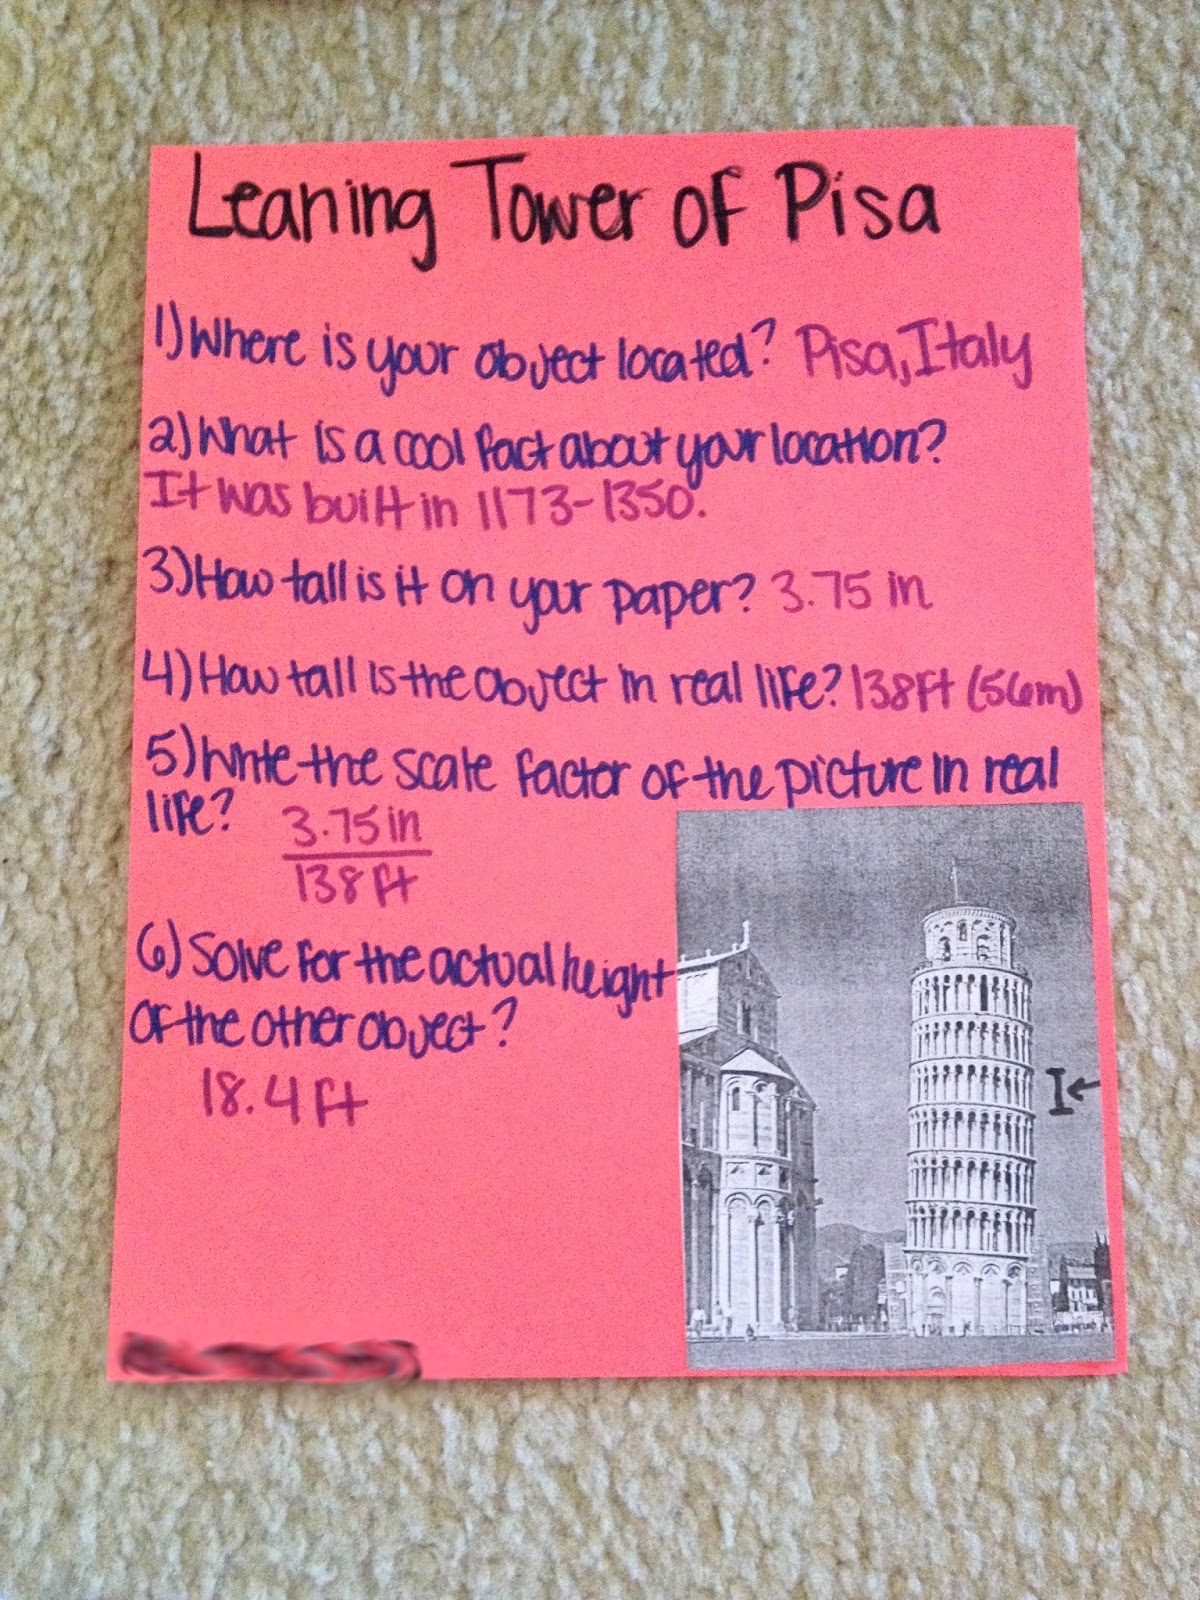 Leaning Tower of Pisa
1) Where is your object located? Pisa, Italy
2) What is a cool fact about your location?
It was built in 1173-1350.
3) How tall is it on your paper? 3.75 in
4) How tall is the object in real life? 138 ft (56m)
5) Write the scale factor of the picture in real
life? 3.75 in
138 ft
6) Solve for the actual height
of the other object?
18.4 ft
I←